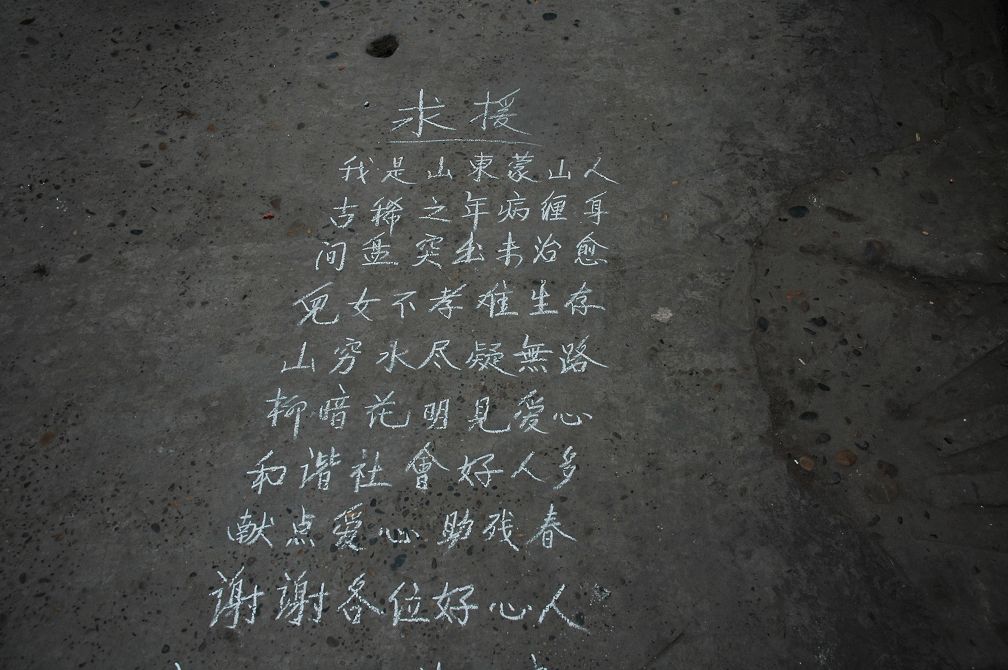 求援
我是山東蒙山人
古稀之年病缠身
间盘突出未治愈
児女不孝难生存
山穷水尽疑無路
柳暗花明見爱心
和谐社會好人多
献点爱心助残春
谢谢各位好心人